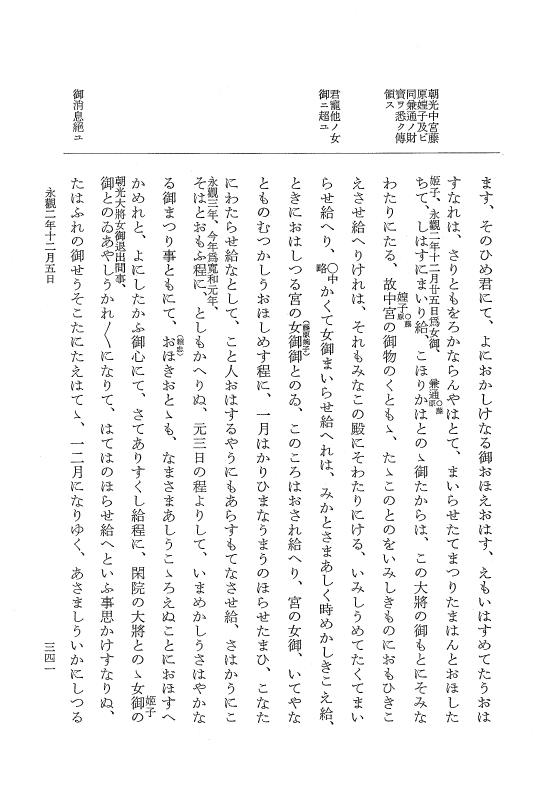 ます、そのひめ君にて、よにおかしけなる御おほえおはす、えもいはすめてたうおは
すなれは、さりともをろかならんやはとて、まいらせたてまつりたまはんとおほした
姬子、永觀二年十二月廿五日爲女御、
兼通〇藤原
ちて、しはすにまいり給、こほりかはとのゝ御たからは、この大將の御もとにそみな
朝光中宮藤
原媓子及ビ
同兼通ノ財
寶ヲ悉ク傳
領ス
媓子〇藤原
わたりにたる、故中宮の御物のくともゝ、たゝこのとのをいみしきものにおもひきこ
えさせ給へりけれは、それもみなこの殿にそわたりにける、いみしうめてたくてまい
君寵他ノ女
御ニ超ユ
らせ給へり、〇中略かくて女御まいらせ給へれは、みかとさまあしく時めかしきこえ給、
(藤原婉子)
ときにおはしつる宮の女御御とのゐ、このころはおされ給へり、宮の女御、いてやな
とものむつかしうおほしめす程に、一月はかりひまなうまうのほらせたまひ、こなた
にわたらせ給なとして、こと人おはするやうにもあらすもてなさせ給、さはかうにこ
永觀三年、今年爲寬和元年、
そはとおもふ程に、としもかへりぬ、元三日の程よりして、いまめかしうさはやかな
(賴忠)
る御まつり事ともにて、おほきおとゝも、なまさまあしうこゝろえぬことにおほすへ
姬子
かめれと、よにしたかふ御心にて、さてありすくし給程に、閑院の大將とのゝ女御の
朝光大將女御退出間事、
御とのゐあやしうかれ〳〵になりて、はてはのほらせ給へといふ事思かけすなりぬ、
御消息絕ユ
たはふれの御せうそこたにたえはてゝ、一二月になりゆく、あさましういかにしつる
永觀二年十二月五日
三四一